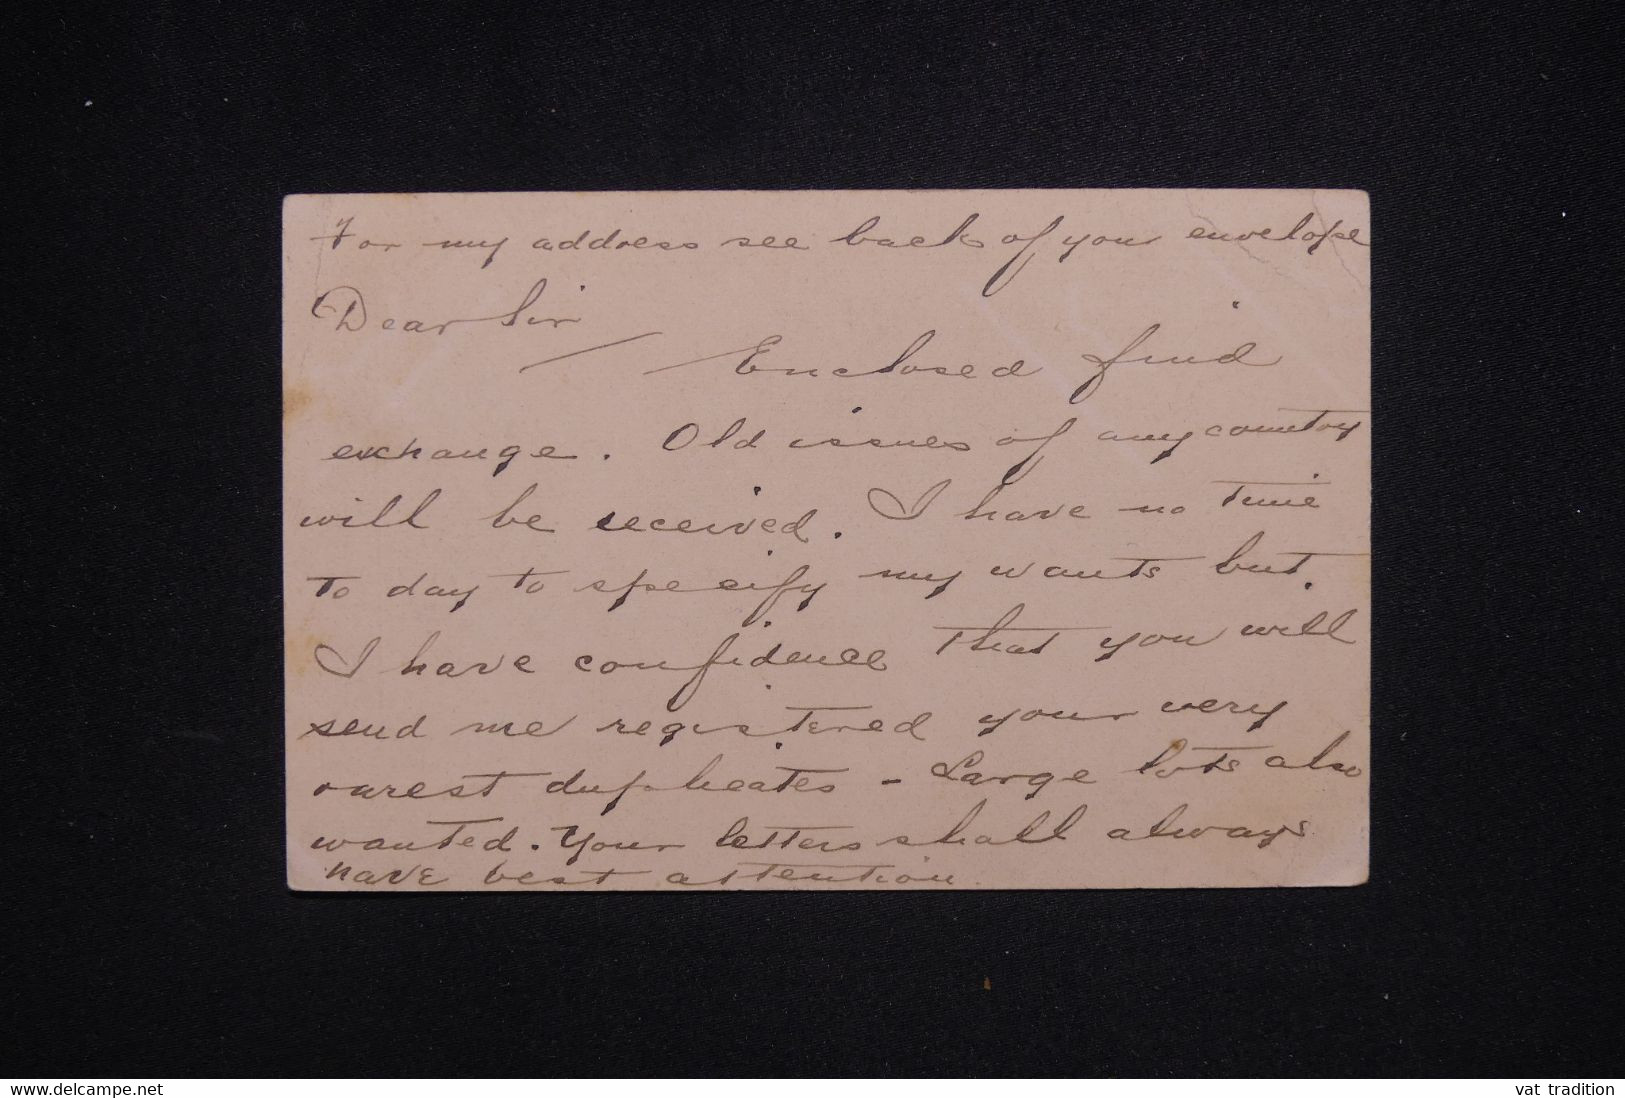 For my address see back of your envelope
Dear Sir
Enclosed find
exchange. Old issues of any country
will be received. I have no time
to day to specify my wants but.
I have confidence that you will
send me registered your very
rarest duplicates - Large lots also
wanted. Your letters shall always
have best attention.
www.delcampe.net
vat tradition